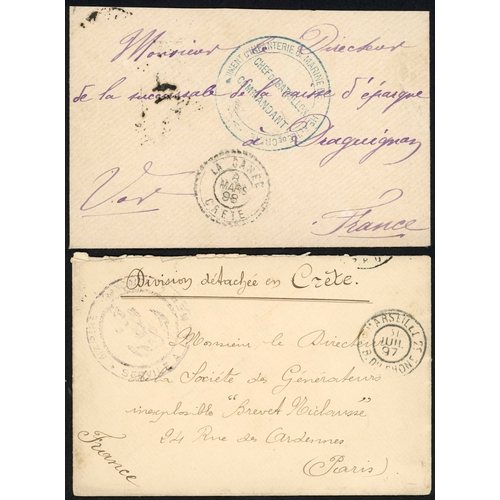 Monsieur le Directeur
de la succursale de la caisse d'épargne
à Draguignan
Var
France
INFANTERIE DE MARINE
CHEF DE BATAILLON
COMMANDANT
LA CANÉE
8
MARS
98
CRETE
Division détachée en Crète.
MARSEILLE
JUIL
97
B. DU RHONE
Monsieur le Directeur
de la Société des Générateurs
inexplosible "Brevet Niclausse"
24 Rue des Ardennes
(Paris)
France